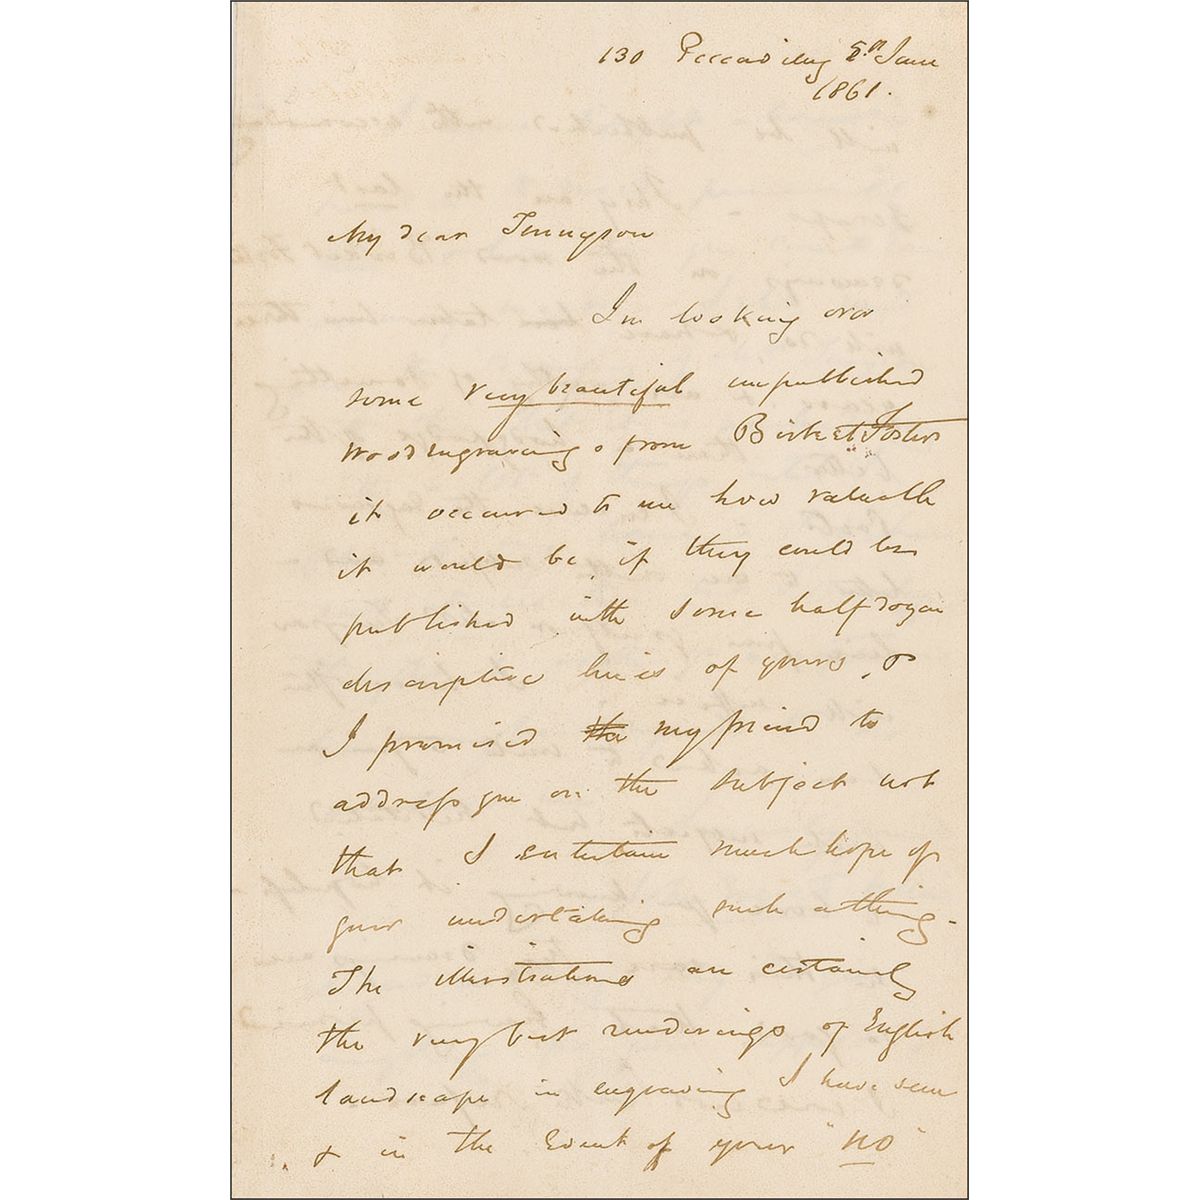 130 Piccadilly 8th June
1861.
My dear Tennyson
In looking over
some very beautiful unpublished
wood engravings from Birket Fosters
it occurred to me how valuable
it would be, if they could be
published with some half dozen
descriptive lines of yours, &
I promised the my friend to
address you on the subject not
that I entertain much hope of
your undertaking such a thing.
The illustrations are certainly
the very best renderings of English
landscape in engraving I have seen
& in the Event of your "NO"